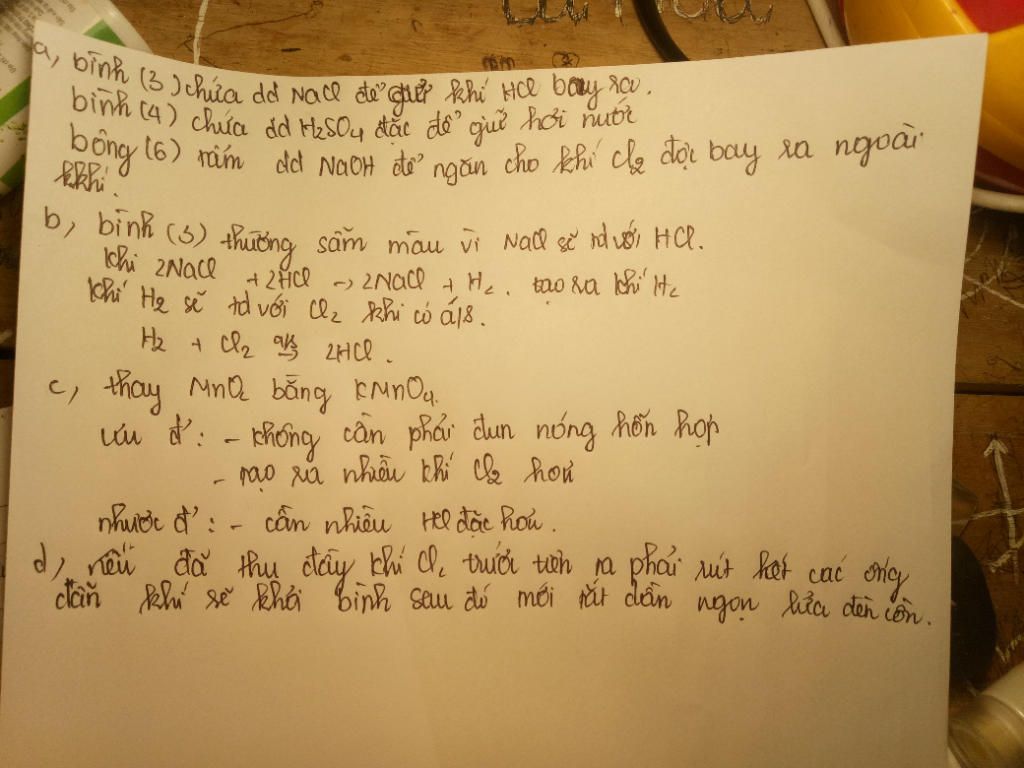 a, bình (3) chứa dd NaCl để giữ khí HCl bay ra.
bình (4) chứa dd H₂SO₄ đặc để giữ hơi nước
bông (6) tẩm dd NaOH để ngăn cho khí Cl₂ độc bay ra ngoài
kkhí.
b, bình (3) thường sẫm màu vì NaCl sẽ td với HCl.
khi 2NaCl + 2HCl → 2NaCl + H₂. tạo ra khí H₂
khí H₂ sẽ td với Cl₂ khi có á/s.
H₂ + Cl₂ a/s→ 2HCl.
c, thay MnO₂ bằng KMnO₄.
ưu đ': - không cần phải đun nóng hỗn hợp
- tạo ra nhiều khí Cl₂ hơn
nhược đ': - cần nhiều HCl đặc hơn.
d, nếu đã thu đầy khí Cl₂ trước tiên ta phải rút hết các ống
dẫn khí sẽ khỏi bình sau đó mới tắt dần ngọn lửa đèn cồn.